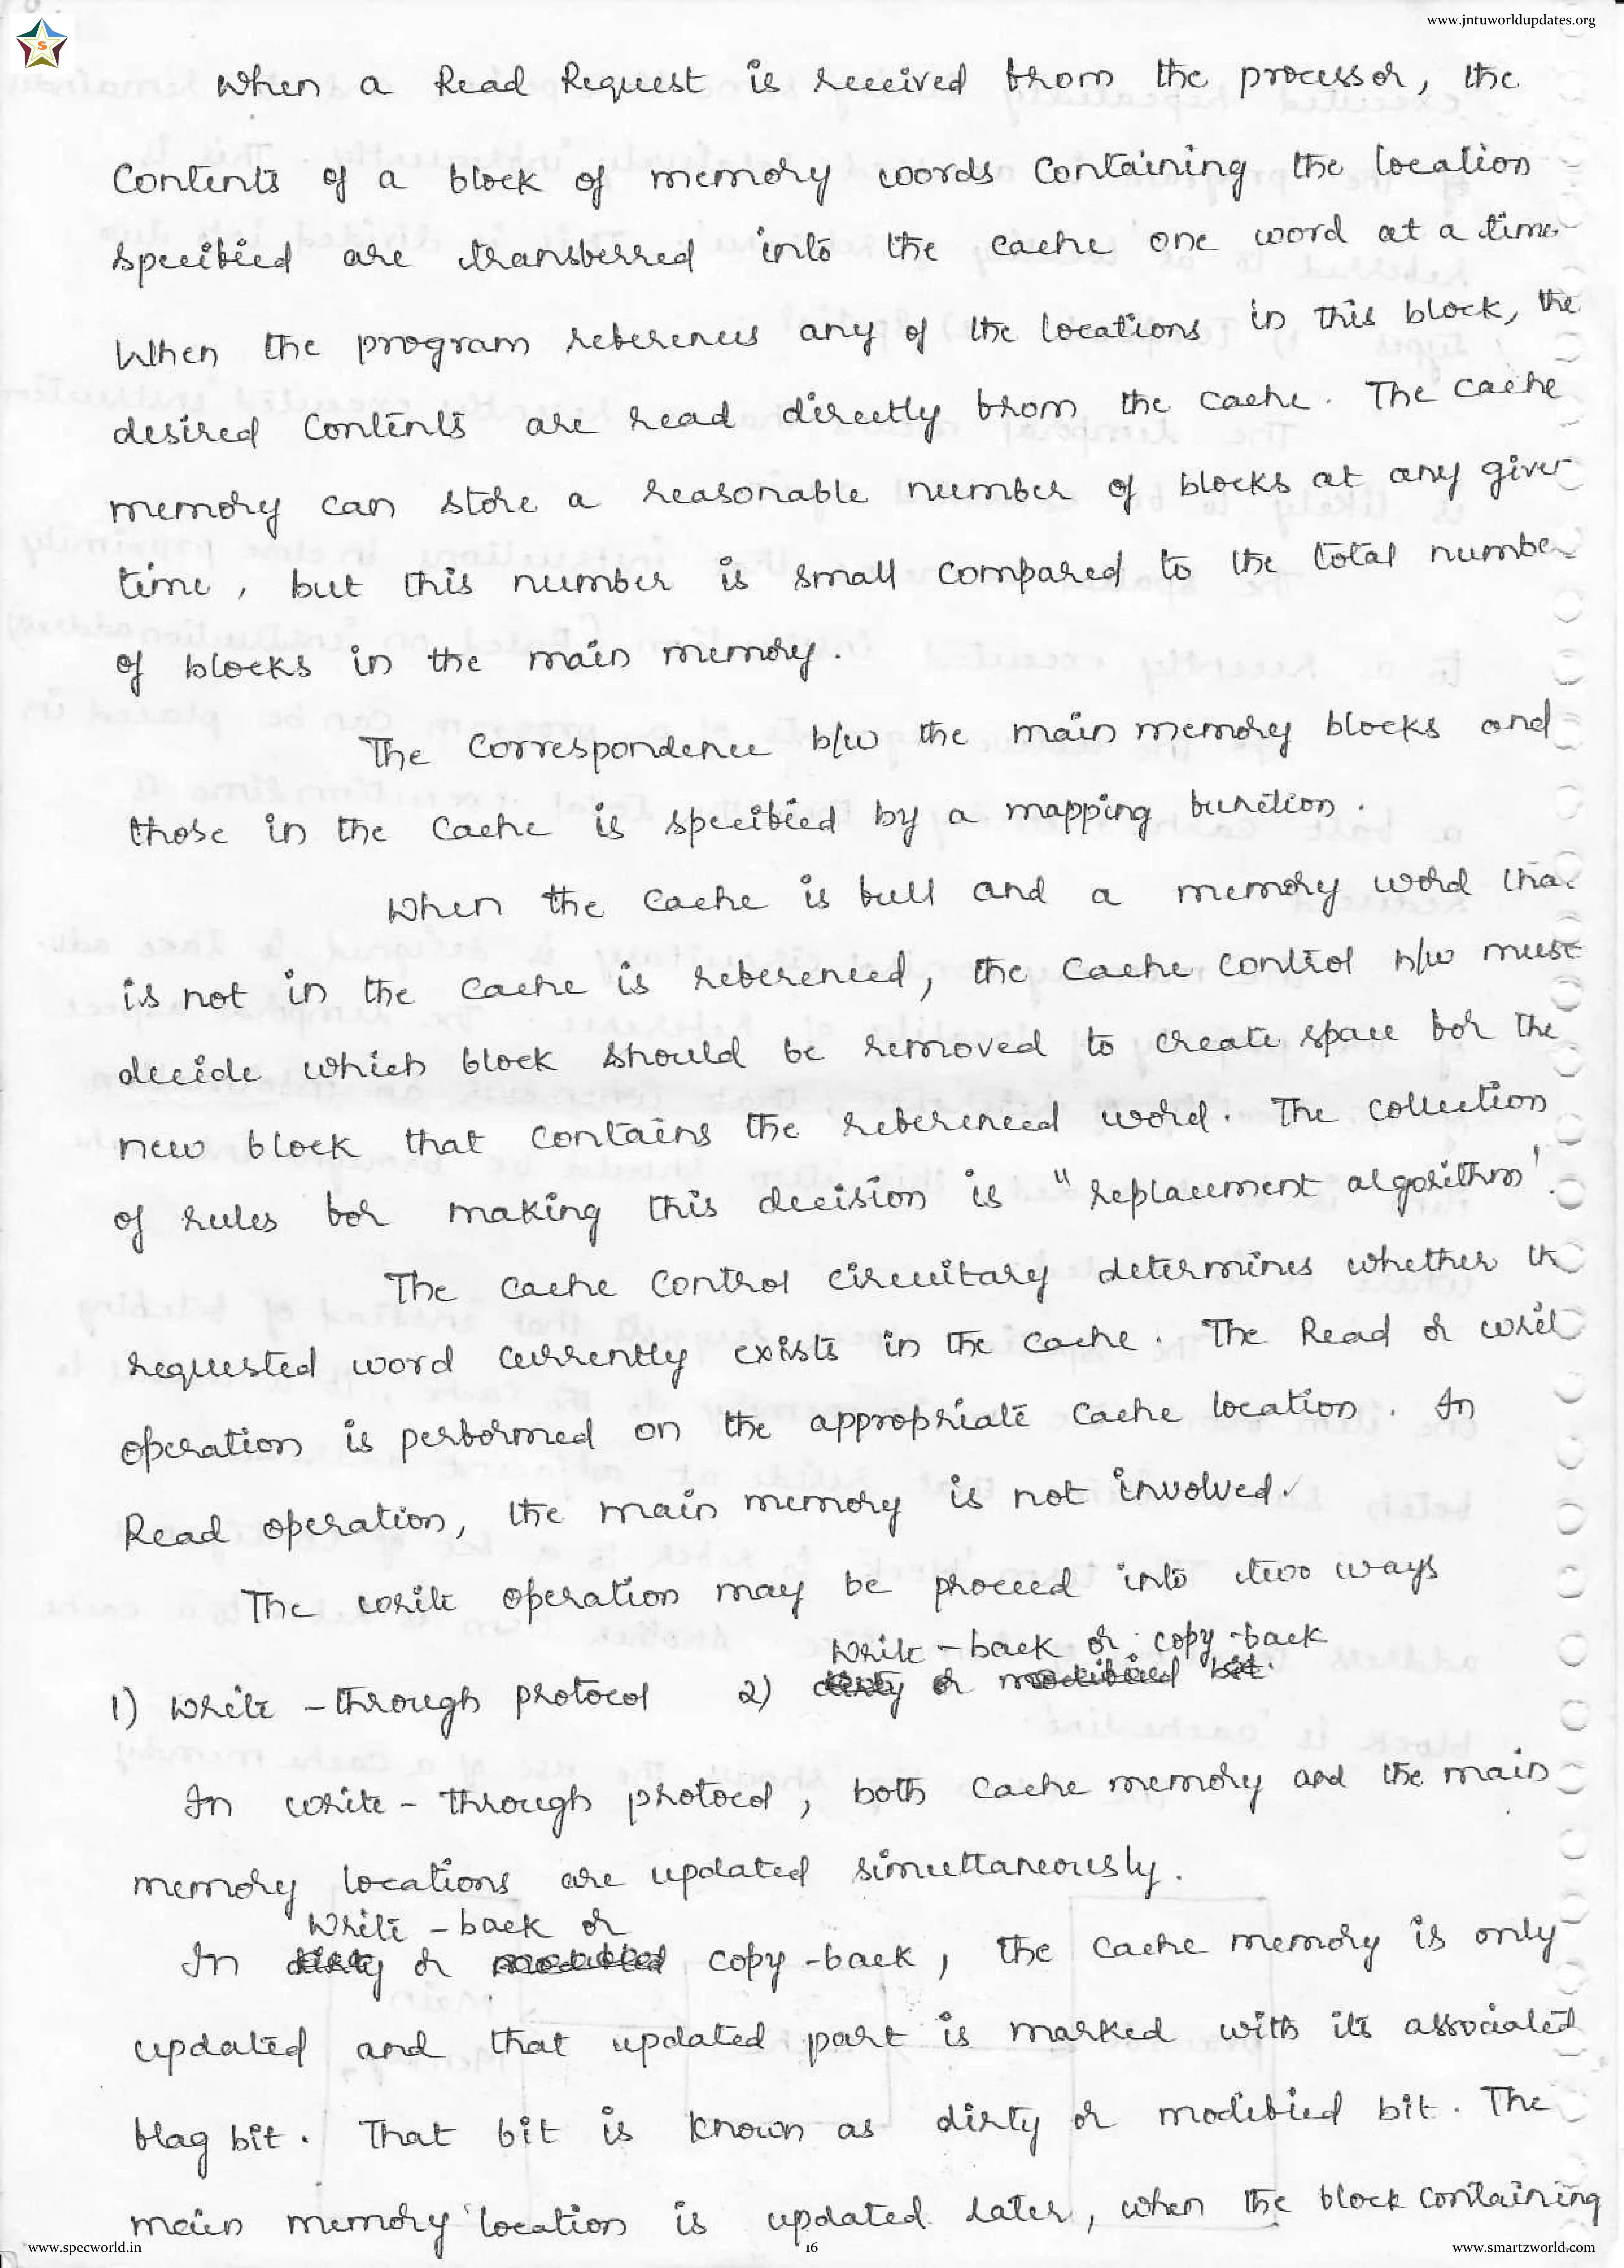 www.jntuworldupdates.org
S
When a Read Request is received from the processor, the
Contents of a block of memory words containing the location
specified are transferred into the cache one word at a time
When the program references any of the locations in this block, the
desired contents are read directly from the cache. The cache
memory can store a reasonable number of blocks at any given
time, but this number is small compared to the total number
of blocks in the main memory.
The correspondence b/w the main memory blocks and
those in the cache is specified by a mapping function.
When the cache is full and a memory word tha
is not in the cache is referenced, the cache control h/w must
decide which block should be removed to create space for the
new block that contains the referenced word. The collection
of rules for making this decision is "replacement algorithm'.
The cache control circuitary determines whether th
requested word currently exists in the cache. The Read or write
operation is performed on the appropriate cache location. In
Read operation, the main memory is not involved.
The write operation may be proceed into two ways
write-back or copy-back
1) write-through protocol 2) dirty or modified bit.
In write-through protocol, both cache memory and the main
memory locations are updated simultaneously.
write-back or
In dirty or modified copy-back, the cache memory is only
updated and that updated part is marked with its associated
flag bit. That bit is known as dirty or modified bit. The
main memory location is updated later, when the block containing
www.specworld.in 16 www.smartzworld.com